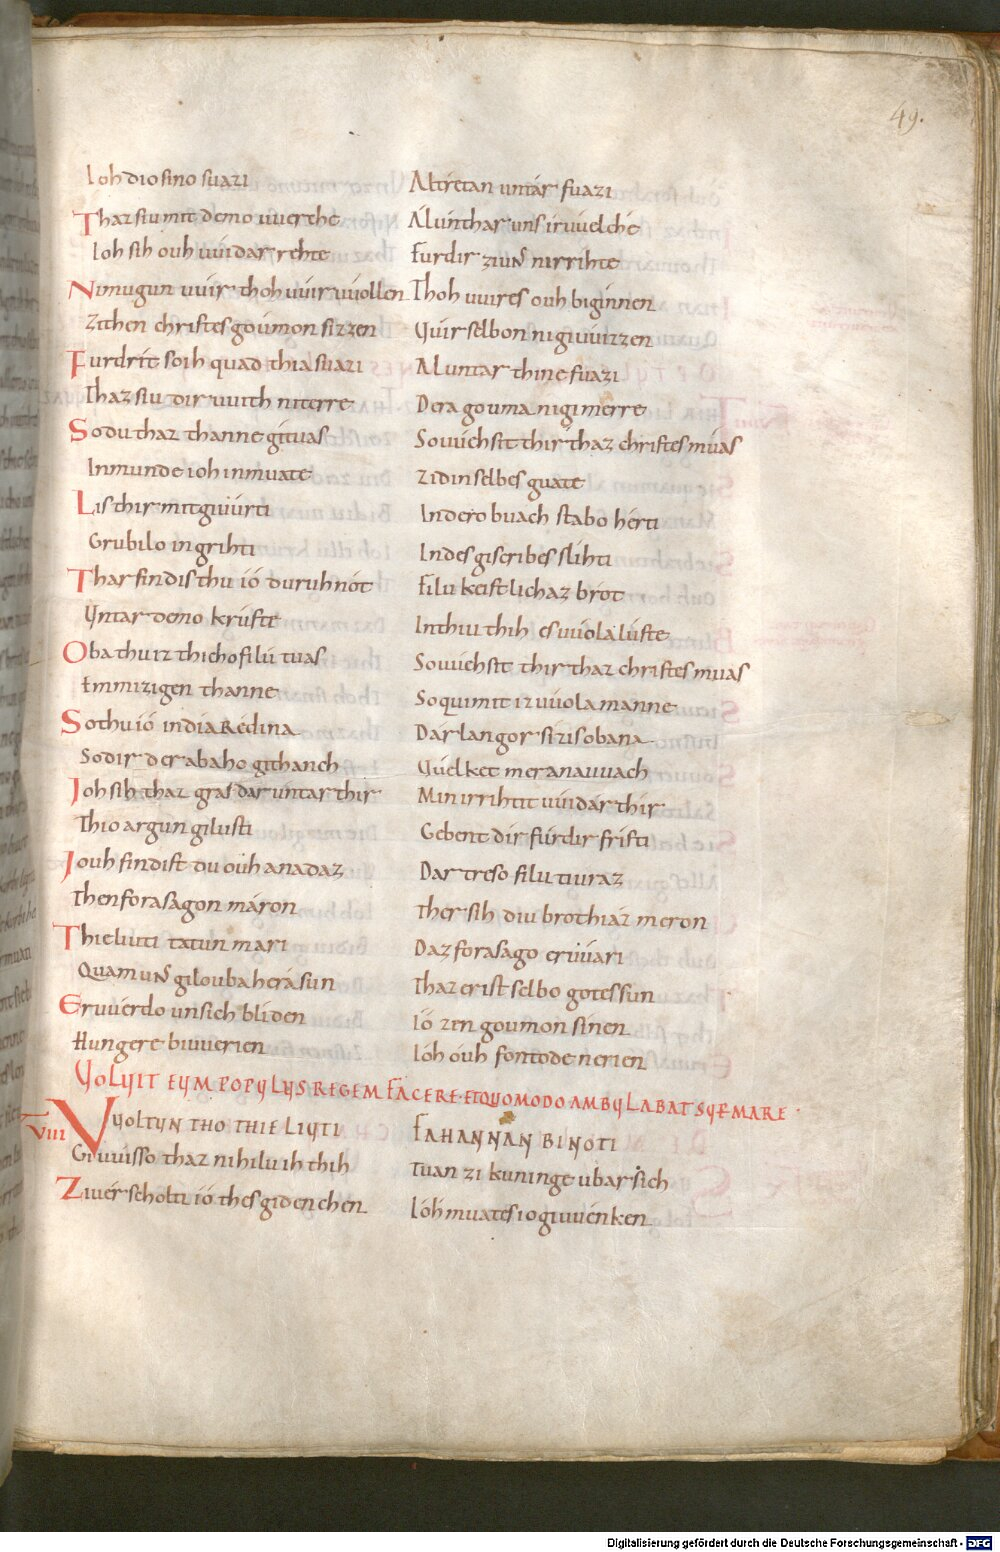 49.
Ioh dio sino suazi Altretan untar fuazi
Thaz siu mit demo uuerthe Al unthar uns iruuelche
Ioh sih ouh uuidar rehte Furdir zi uns nirrihte
Nimugun uuir thoh uuir uuollen Thoh uuir es ouh biginnen
Zithen christes goumon sizzen Uuir selbon nigiuuizzen
Furdrit soih quad thia suazi Al untar thine fuazi
Thaz siu dir uuith niterre Dera gouma nigimerre
Sodu thaz thanne gituas Souuehsit thir thaz christes muas
In munde ioh in muate Zi din selbes guate
Lis thir mit giuurti In dero buach stabo herti
Grubilo in grihti In des giscribes slihti
Thar findis thu io duruh not Filu keistlichaz brot
Untar demo krufte In thiu thih es uuola lufte
Oba thu iz thicho filu tuas Souuehsit thir thaz christes muas
Emmizigen thanne Soquimit iz uuola manne
So thu io in dia Redina Dar langor sizis obana
Sodir der abaho githanch Uuelket mer ana uuach
Ioh sih thaz gras dar untar thir Min irrihtit uuidar thir
Thio argun gilusti Gebent dir furdir fristi
Iouh findist du ouh ana daz Dar treso filu tiuraz
Then forasagon maron Ther sih diu brothiaz meron
Thie liuti tatun mari Daz forasago er uuari
Quam uns gilouba hera sun Thaz er ist selbo gotes sun
Er uuerdo unsich bliden Io zen goumon sinen
Hungere biuuerien Ioh ouh fon tode nerien
UOLUIT EUM POPULUS REGEM FACERE ET QUOMODO AMBULABAT SUP MARE
VIII VUOLTUN THO THIE LIUTI FAHAN NAN BI NOTI
Giuuisso thaz nihiluih thih Tuan zi kuninge ubar sich
Ziuuer scholti io thes gidenchen Ioh muates io giuuenken
Digitalisierung gefördert durch die Deutsche Forschungsgemeinschaft - DFG